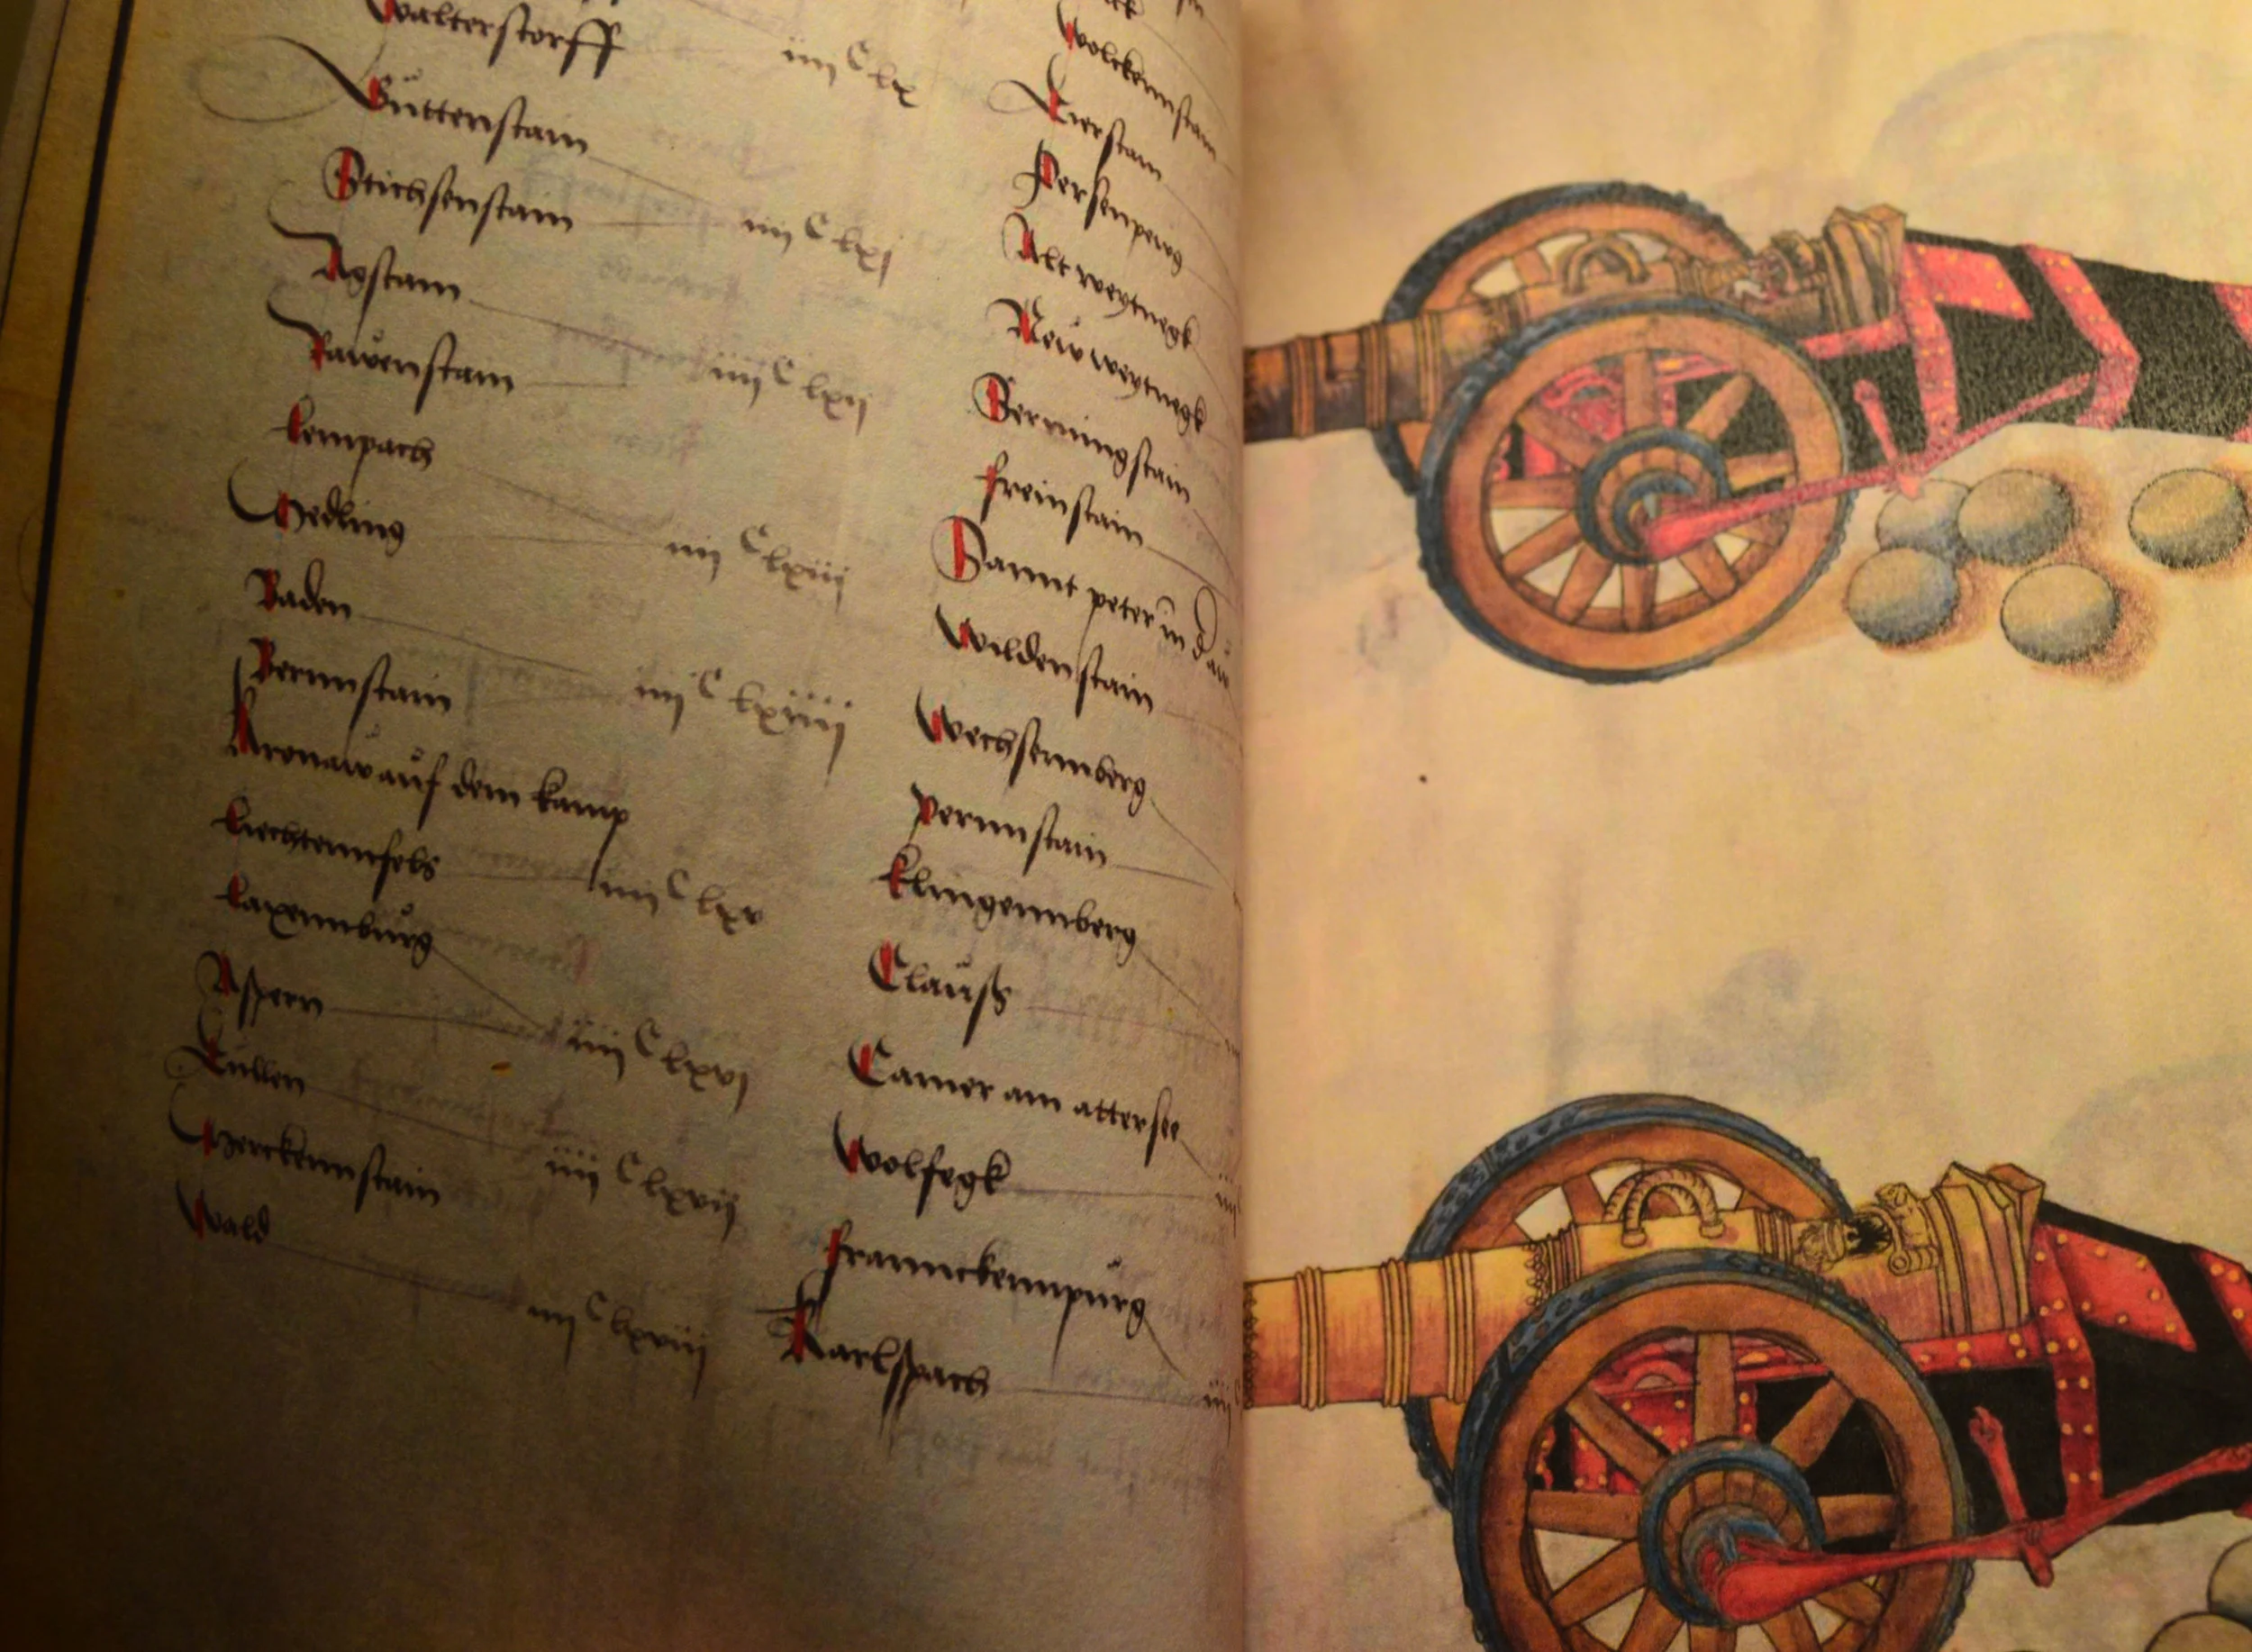 Walterstorff iiii C lx
Guttenstain
Stichsenstain iiii C lxj
Agstain
Rauhenstain iiii C lxij
Lempach
Medling iiii C lxiij
Baden
Bernnstain iiii C lxiiij
Kronaw auf dem kamp
Liechtennfels iiii C lxv
Laxennburg
Aspern iiii C lxvj
Tullen
Merckennstain iiii C lxvij
Wald iiii C lxviij
Wolckennstain
Tierstain
Persenpeug
Alt weytnegk
New weytnegk
Berningstain
freinstain
Sannt peter in d aw
Wildenstain
Wechsennberg
Pernnstain
klingennberg
Clauss
Camer am attersee
Wolfegk
frannckennpurg
Karlspach